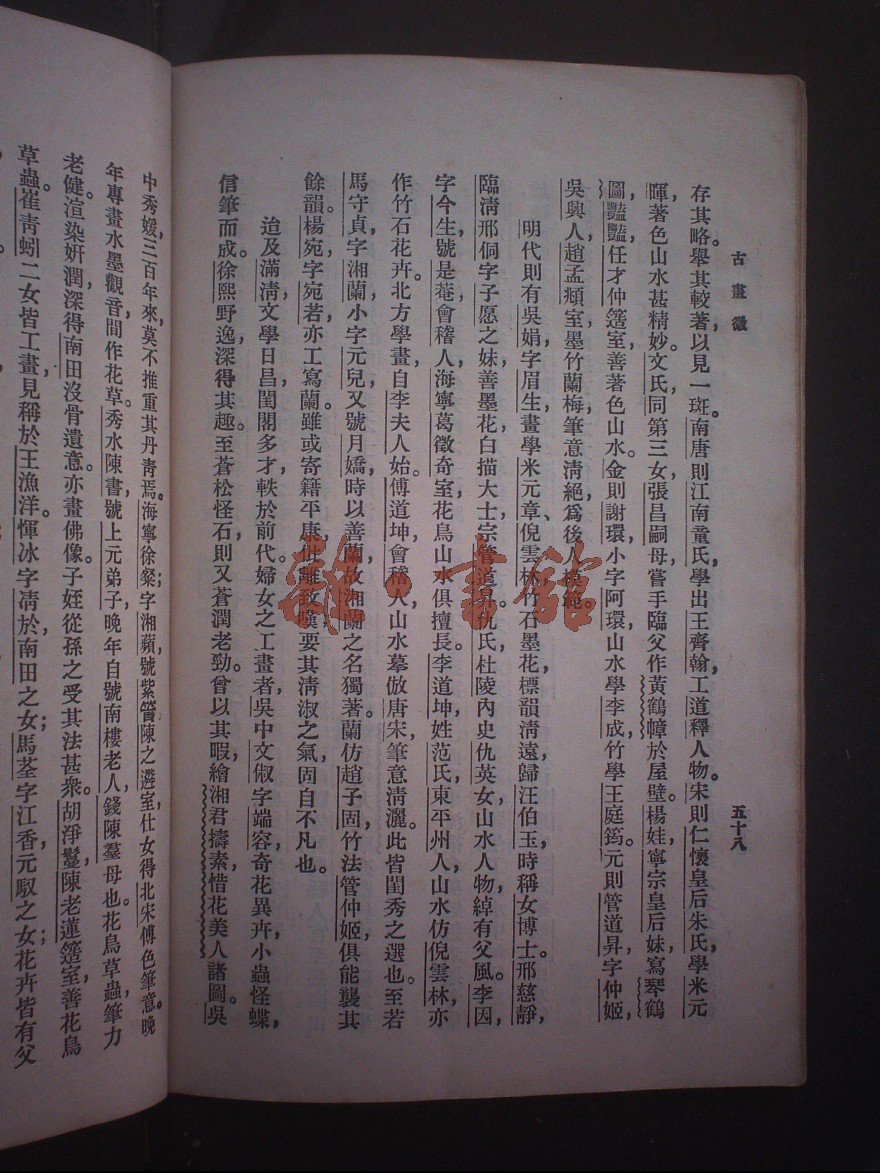 古畫微
五十八
存其略。舉其較著,以見一斑。南唐則江南童氏,學出王齊翰,工道釋人物。宋則仁懷皇后朱氏,學米元
暉,著色山水甚精妙。文氏,同第三女張昌嗣母,嘗手臨父作黃鶴幛於屋壁。楊娃,寧宗皇后妹,寫琴鶴
圖。豔豔,任才仲簉室,善著色山水。金則謝環,小字阿環,山水學李成,竹學王庭筠。元則管道昇,字仲姬,
吳興人,趙孟頫室,墨竹蘭梅,筆意淸絕,爲後人模範。
明代則有吳娟,字眉生,畫學米元章、倪雲林,竹石墨花,標韻淸遠,歸汪伯玉,時稱女博士。邢慈靜,
臨淸邢侗字子愿之妹,善墨花白描大士,宗管道昇。仇氏,杜陵內史,仇英女,山水人物,綽有父風。李因,
字今生,號是菴,會稽人,海寧葛徵奇室,花鳥山水俱擅長。李道坤,姓范氏,東平州人,山水仿倪雲林,亦
作竹石花卉。北方學畫,自李夫人始。傅道坤,會稽人,山水摹倣唐宋,筆意淸灑。此皆閨秀之選也。至若
馬守貞,字湘蘭,小字元兒,又號月嬌,時以善蘭,故湘蘭之名獨著。蘭仿趙子固,竹法管仲姬,俱能襲其
餘韻。楊宛,字宛若,亦工寫蘭。雖或寄籍平康,仳離致嘆,要其淸淑之氣,固自不凡也。
迨及滿淸,文學日昌,閨閣多才,軼於前代。婦女之工畫者,吳中文俶,字端容,奇花異卉,小蟲怪蝶,
信筆而成。徐熙野逸,深得其趣。至蒼松怪石,則又蒼潤老勁。曾以其暇,繪湘君擣素惜花美人諸圖。吳
中秀媛,三百年來,莫不推重其丹青焉。海寧徐粲,字湘蘋,號紫䇾,陳之遴室,仕女得北宋傅色筆意,晚
年專畫水墨觀音,間作花草。秀水陳書,號上元弟子,晚年自號南樓老人,錢陳羣母也。花鳥草蟲,筆力
老健。渲染妍潤,深得南田沒骨遺意。亦畫佛像。子姪從孫之受其法甚衆。胡淨鬘,陳老蓮簉室,善花鳥
草蟲。崔靑蚓二女皆工畫,見稱於王漁洋。惲冰,字淸於,南田之女;馬荃,字江香,元馭之女;花卉皆有父